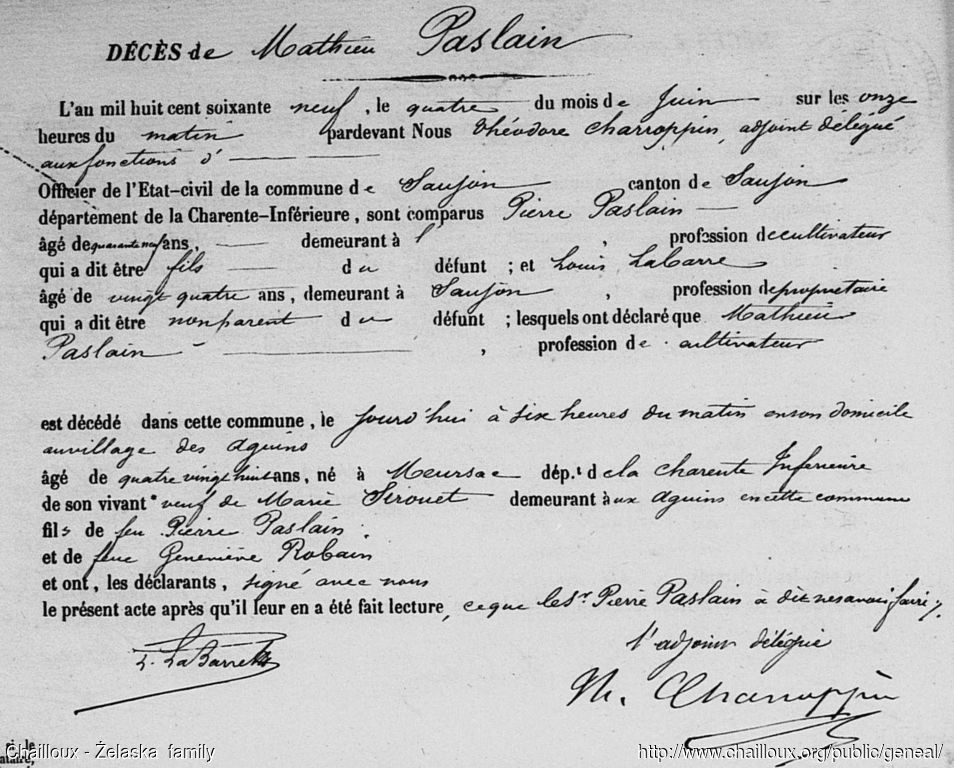 DÉCÈS de Mathieu Paslain
L'an mil huit cent soixante neuf, le quatre du mois de Juin sur les onze
heures du matin pardevant Nous Théodore Charroppin, adjoint délégué
aux fonctions d'
Officier de l'Etat-civil de la commune de Saujon canton de Saujon
département de la Charente-Inférieure, sont comparus Pierre Paslain
âgé de quarante neuf ans, demeurant à , profession de cultivateur
qui a dit être fils du défunt ; et Louis LaBarre
âgé de vingt quatre ans, demeurant à Saujon , profession de propriétaire
qui a dit être non parent du défunt ; lesquels ont déclaré que Mathieu
Paslain , profession de cultivateur
est décédé dans cette commune, le jourd'hui à six heures du matin en son domicile
au village des Aguins
âgé de quatre vingt huit ans, né à Meursac dép.t de la Charente Inférieure
de son vivant veuf de Marie Sirouet demeurant aux Aguins en cette commune
fils de feu Pierre Paslain
et de feue Geneviève Robain
et ont, les déclarants, signé avec nous
le présent acte après qu'il leur en a été fait lecture, ce que le Sr Pierre Paslain à dit ne savoir faire
L. LaBarre
l'adjoint délégué
Th. Charroppin
Chailloux - Żelaska family
http://www.chailloux.org/public/geneal/